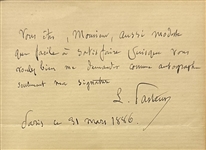 Vous êtes, Monsieur, aussi modeste
que facile à satisfaire puisque vous
voulez bien me demander comme autographe
seulement ma signature
L. Pasteur
Paris ce 31 mars 1886.